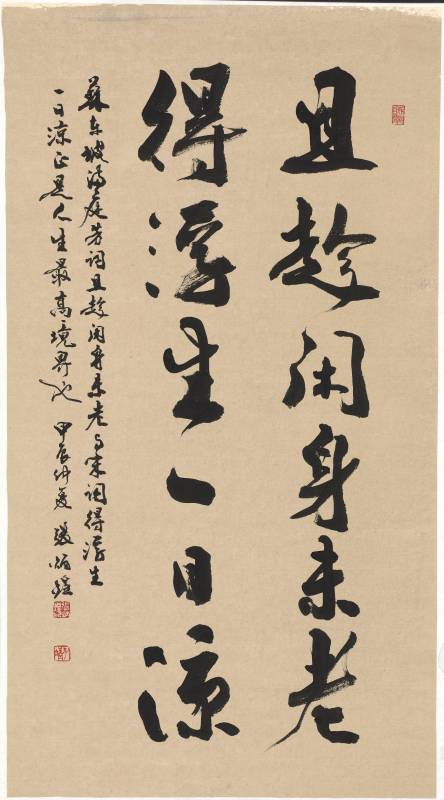 且趁闲身未老
得浮生一日凉
蘇东坡满庭芳词且趁闲身未老与宋词得浮生
一日凉正是人生最高境界也 甲辰仲夏 张炳煌